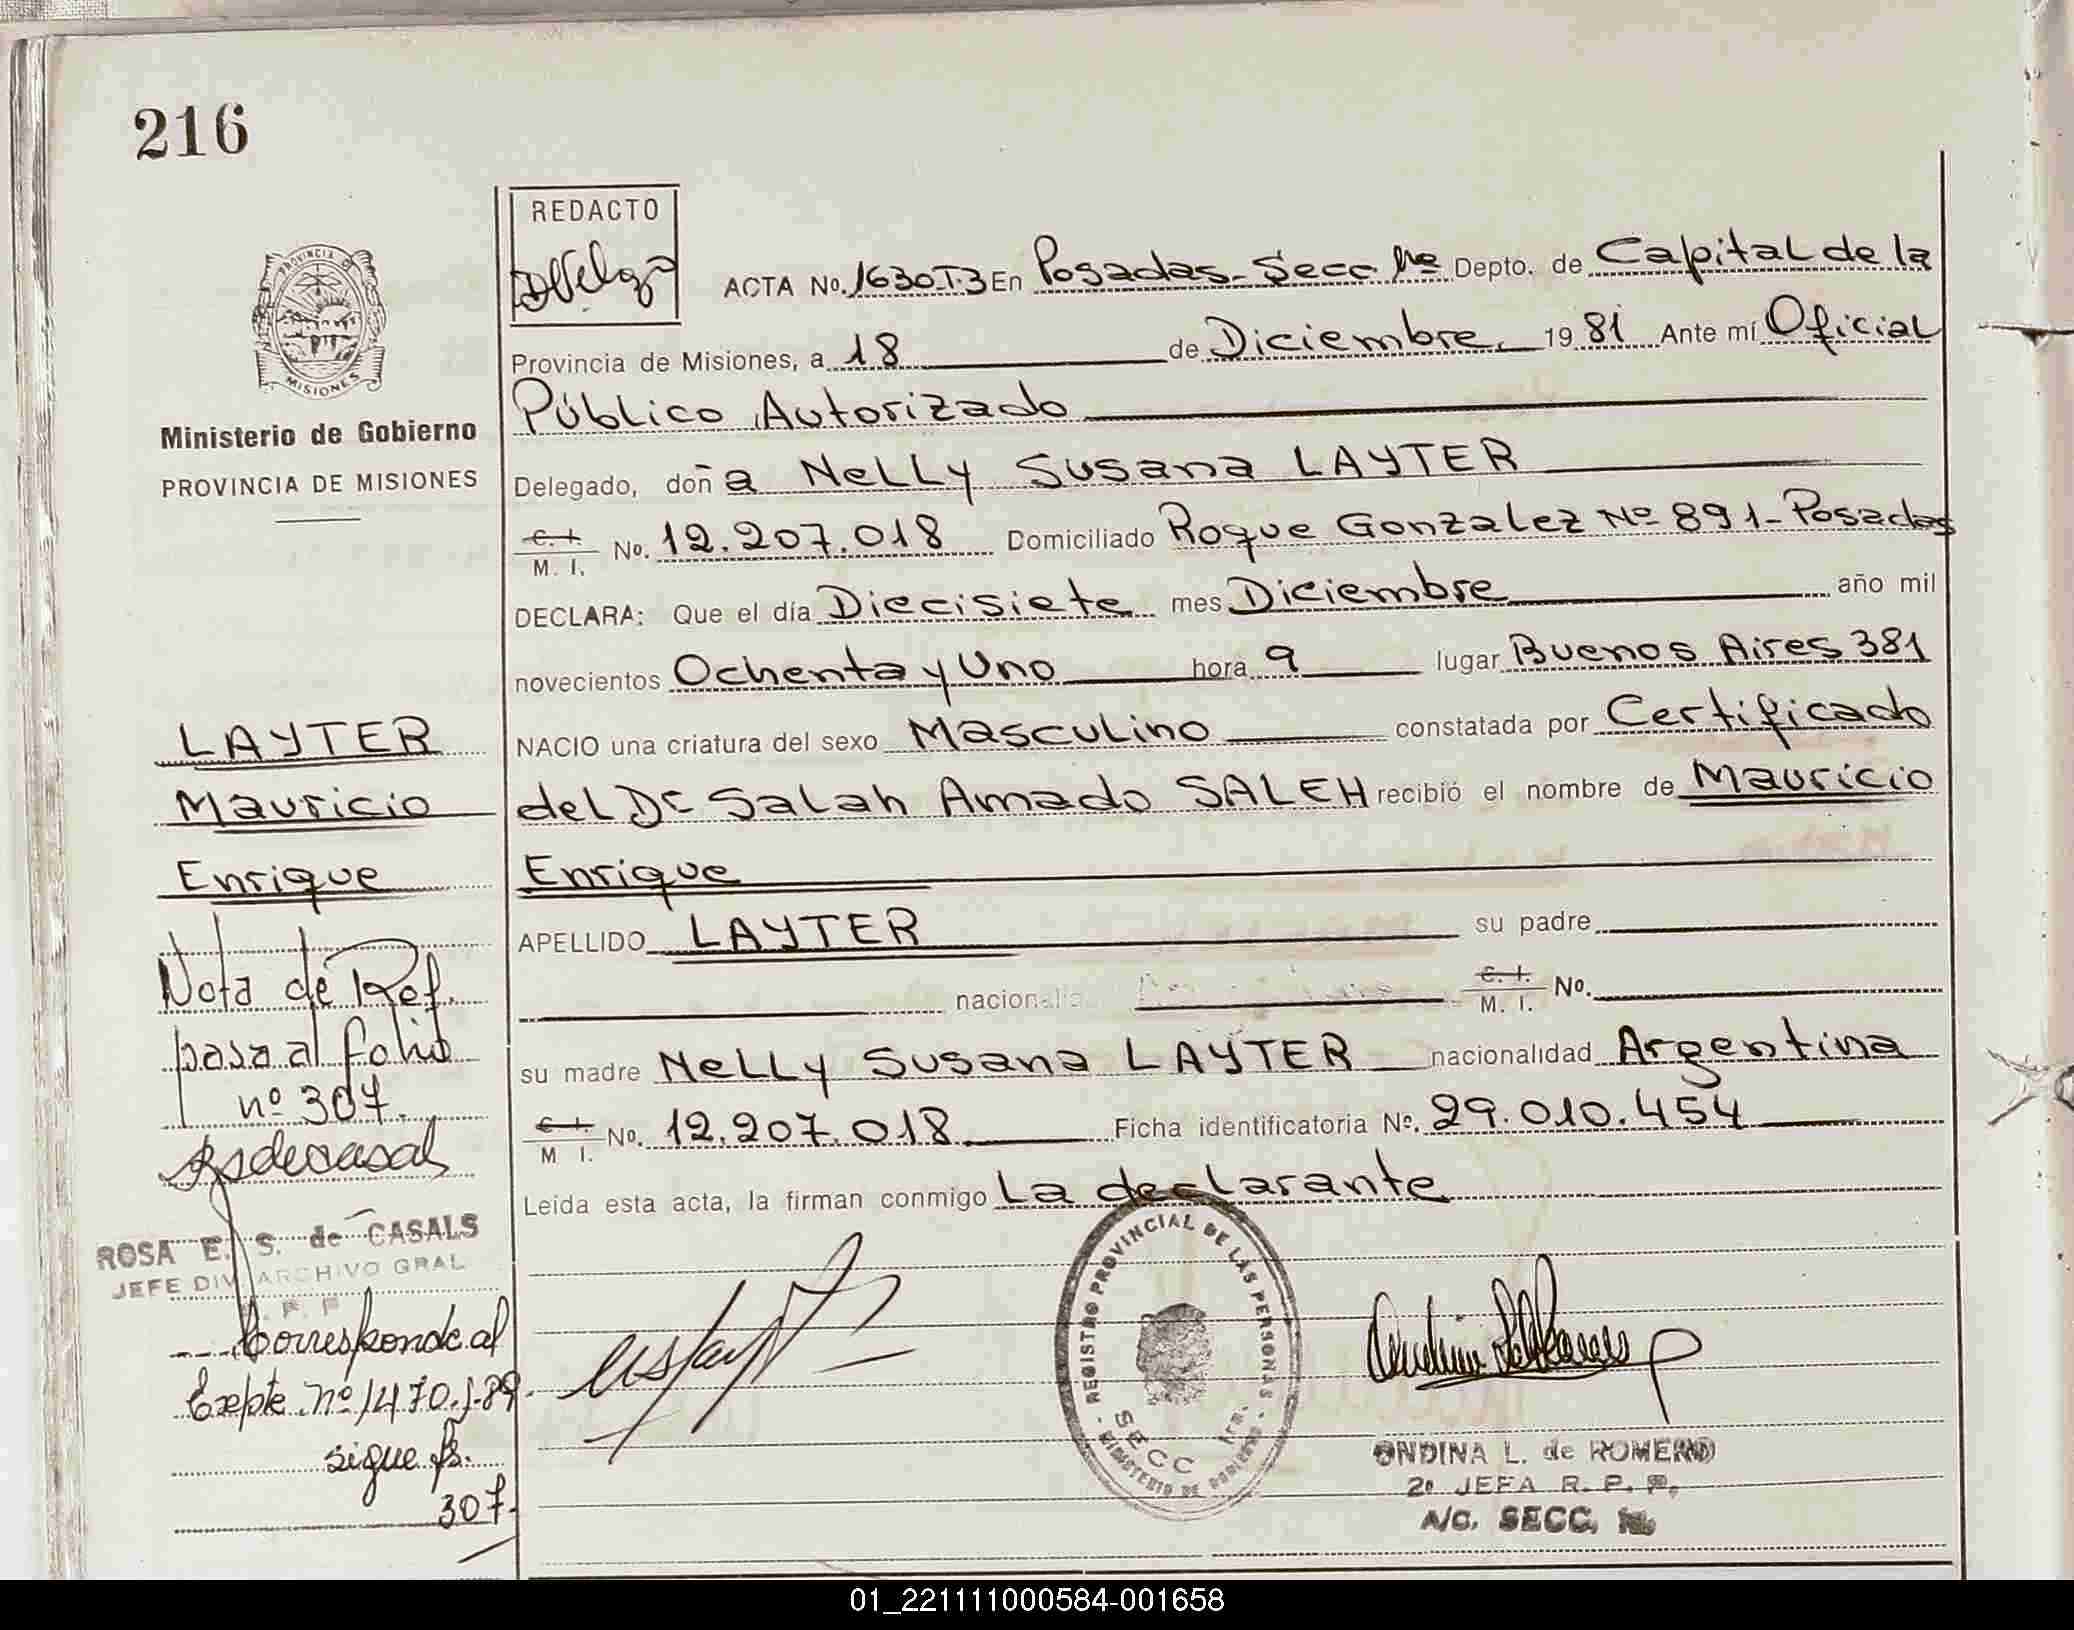 216
REDACTO
ACTA No. 1630 T.3 En Posadas - Secc 1ra Depto. de Capital de la
Provincia de Misiones, a 18 de Diciembre 1981 Ante mí Oficial
Público Autorizado
Delegado, doña Nelly Susana LAYTER
C. I.
M. I. No. 12.207.018 Domiciliado Roque Gonzalez Nº 891 - Posadas
DECLARA: Que el día Diecisiete mes Diciembre año mil
novecientos Ochenta y Uno hora 9 lugar Buenos Aires 381
NACIO una criatura del sexo Masculino constatada por Certificado
del Dr Salah Amado SALEH recibió el nombre de Mauricio
Enrique
APELLIDO LAYTER su padre
nacionali C. I.
M. I. No.
su madre Nelly Susana LAYTER nacionalidad Argentina
C. I.
M I. No. 12.207.018 Ficha identificatoria Nº. 29.010.454
Leída esta acta, la firman conmigo La declarante
REGISTRO PROVINCIAL DE LAS PERSONAS
SECC 1ra.
MINISTERIO DE GOBIERNO
ONDINA L. de ROMERO
2º JEFA R. P. P.
A/C. SECC.
PROVINCIA DE
MISIONES
Ministerio de Gobierno
PROVINCIA DE MISIONES
LAYTER
Mauricio
Enrique
Nota de Ref.
pasa al folio
nº 307.
ROSA E. S. de CASALS
JEFE DIV. ARCHIVO GRAL
Corresponde al
Expte nº 1470-J-89
sigue fs.
307.
01_221111000584-001658